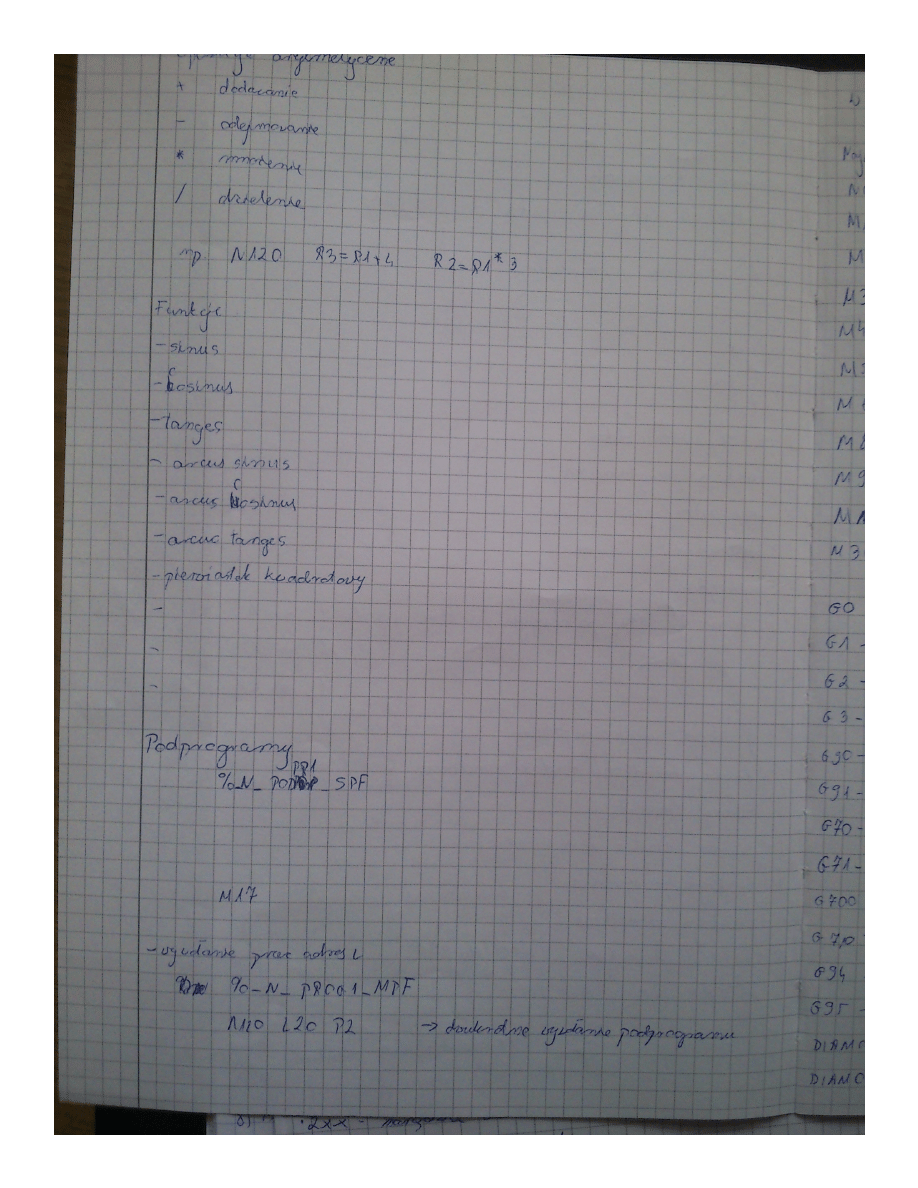 arytmetyczne
+ dodawanie
- odejmowanie
* mnożenie
/ dzielenie
np. N120 R3=R1+4 R2=R1*3
Funkcje
- sinus
- cosinus
- tanges
- arcus sinus
- arcus cosinus
- arcus tanges
- pierwiastek kwadratowy
-
-
-
Podprogramy
%_N_ PODPR1_SPF
M17
- wywołanie przez adres L
%_N_ PROG1_MPF
N110 L20 P2 → dwukrotne wywołanie podprogramu
M3
M4
M9
M3
G0
G1 -
G2 -
G3 -
G90 -
G91 -
G70 -
G71 -
G700
G710
G94
G95 -
DIAMO
DIAMO